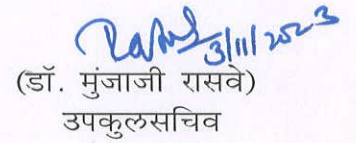 3/11/2023
(डॉ. मुंजाजी रासवे)
उपकुलसचिव